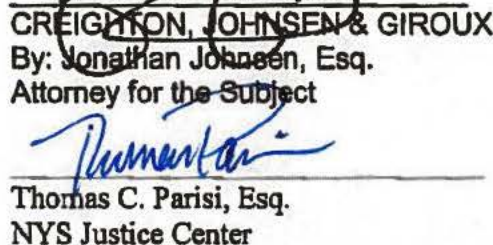 CREIGHTON, JOHNSEN & GIROUX
By: Jonathan Johnsen, Esq.
Attorney for the Subject
Thomas C. Parisi, Esq.
NYS Justice Center